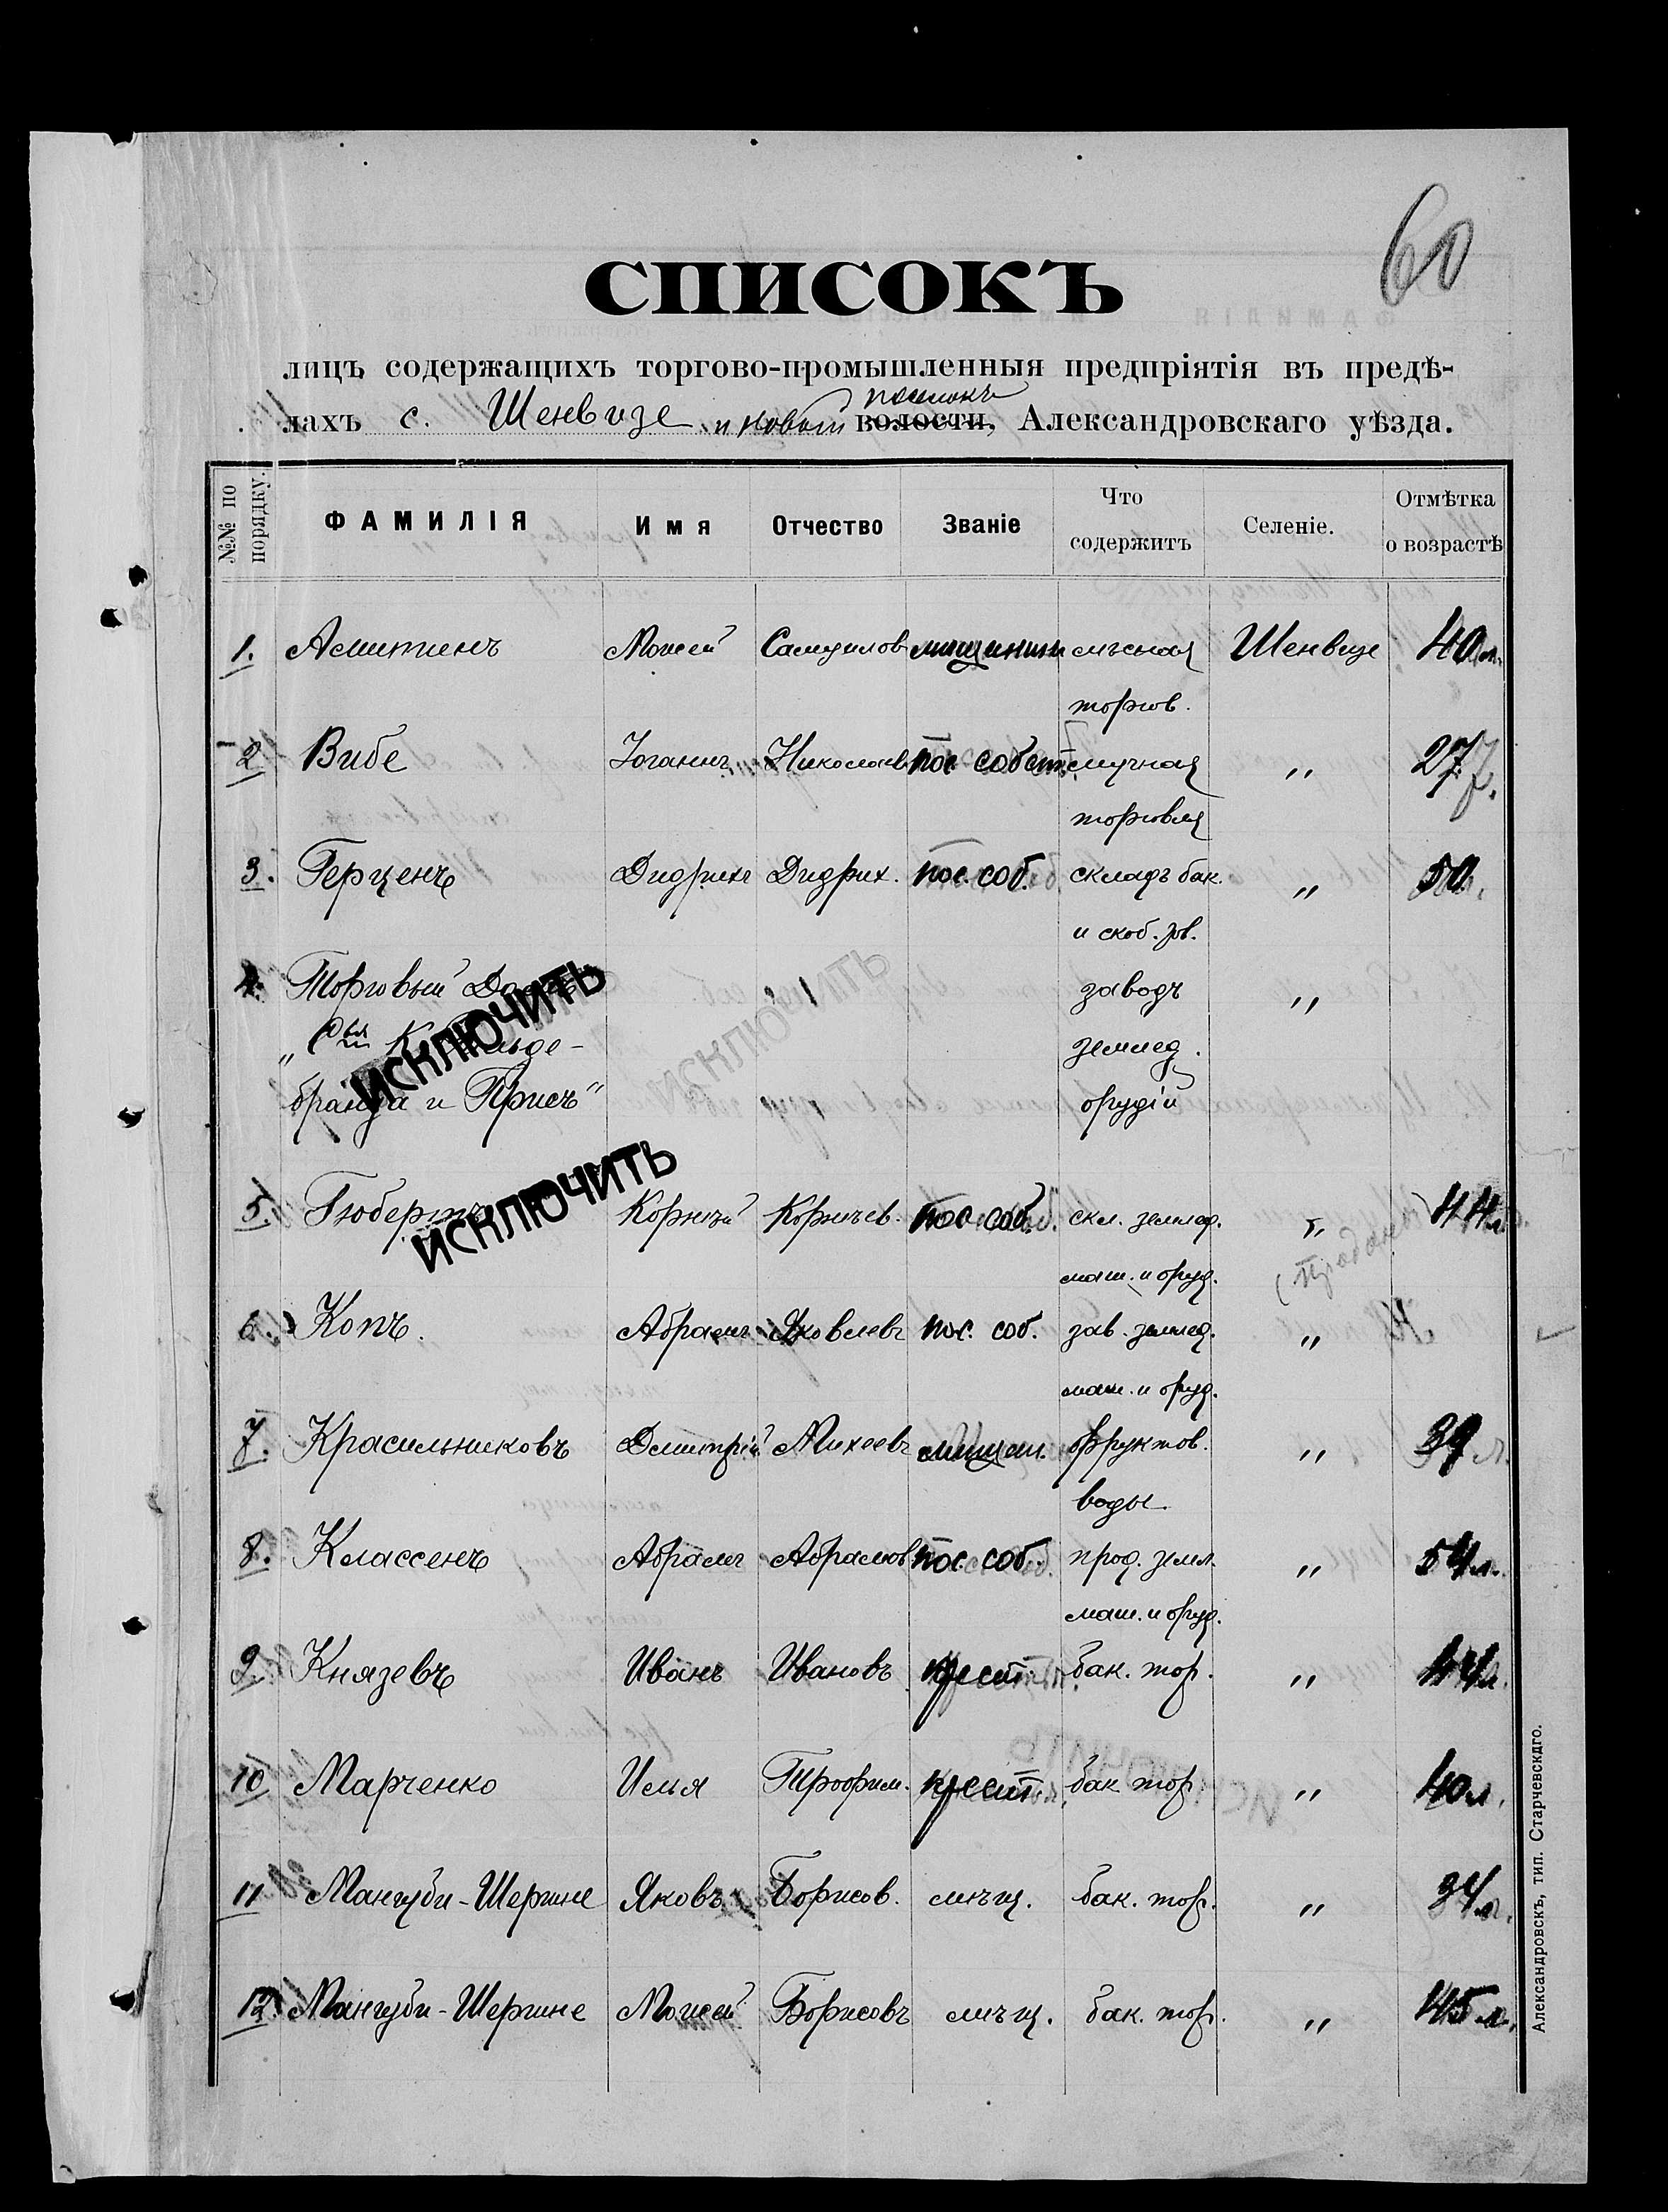 60
СПИСОКЪ
лицъ содержащихъ торгово-промышленныя предпріятія въ предѣ-
поселокъ
лахъ с. Шенвизе и новый волости, Александровскаго уѣзда.
№№ по порядку. ФАМИЛІЯ Имя Отчество Званіе Что содержитъ Селеніе. Отмѣтка о возрастѣ
1. Моисей Самуилов мѣщанин мясная Шенвизе 40 л.
торгов.
2 Вибе Іоганнъ Николаев пос. собств. мучная " 27
торговля
3. Герценъ Дидрихъ Дидрих. пос. соб. складъ бак. " 50.
и скоб. тов.
4. Торговый Домъ заводъ "
"С-вья К. Гильде- землед.
бранда и Присъ" орудій
ИСКЛЮЧИТЬ
5. Гюбертъ Корнѣй Корнѣев. пос. соб. скл. землед. " 44 л
ИСКЛЮЧИТЬ
маш. и оруд.
6. Копъ. Абрамъ Яковлевъ пос. соб. зав. землед. "
маш. и оруд.
7. Красильниковъ Дмитрій Михеевъ мѣщан. фруктов. " 39 л.
воды
8. Классенъ Абрамъ Абрамов пос. соб. прод. земл. " 54 л.
маш. и оруд.
9. Князевъ Иванъ Ивановъ крест. бак. тор. " 44 л.
10 Марченко Илья Трофим. крест. бак. тор. " 40 л.
11 Мангуби-Шеркше Яковъ Борисов. мѣщ. бак. тор. " 34 л.
12. Мангуби-Шеркше Моисей Борисовъ мѣщ. бак. тор. " 45 л.
Александровскъ, тип. Старчевскдго.